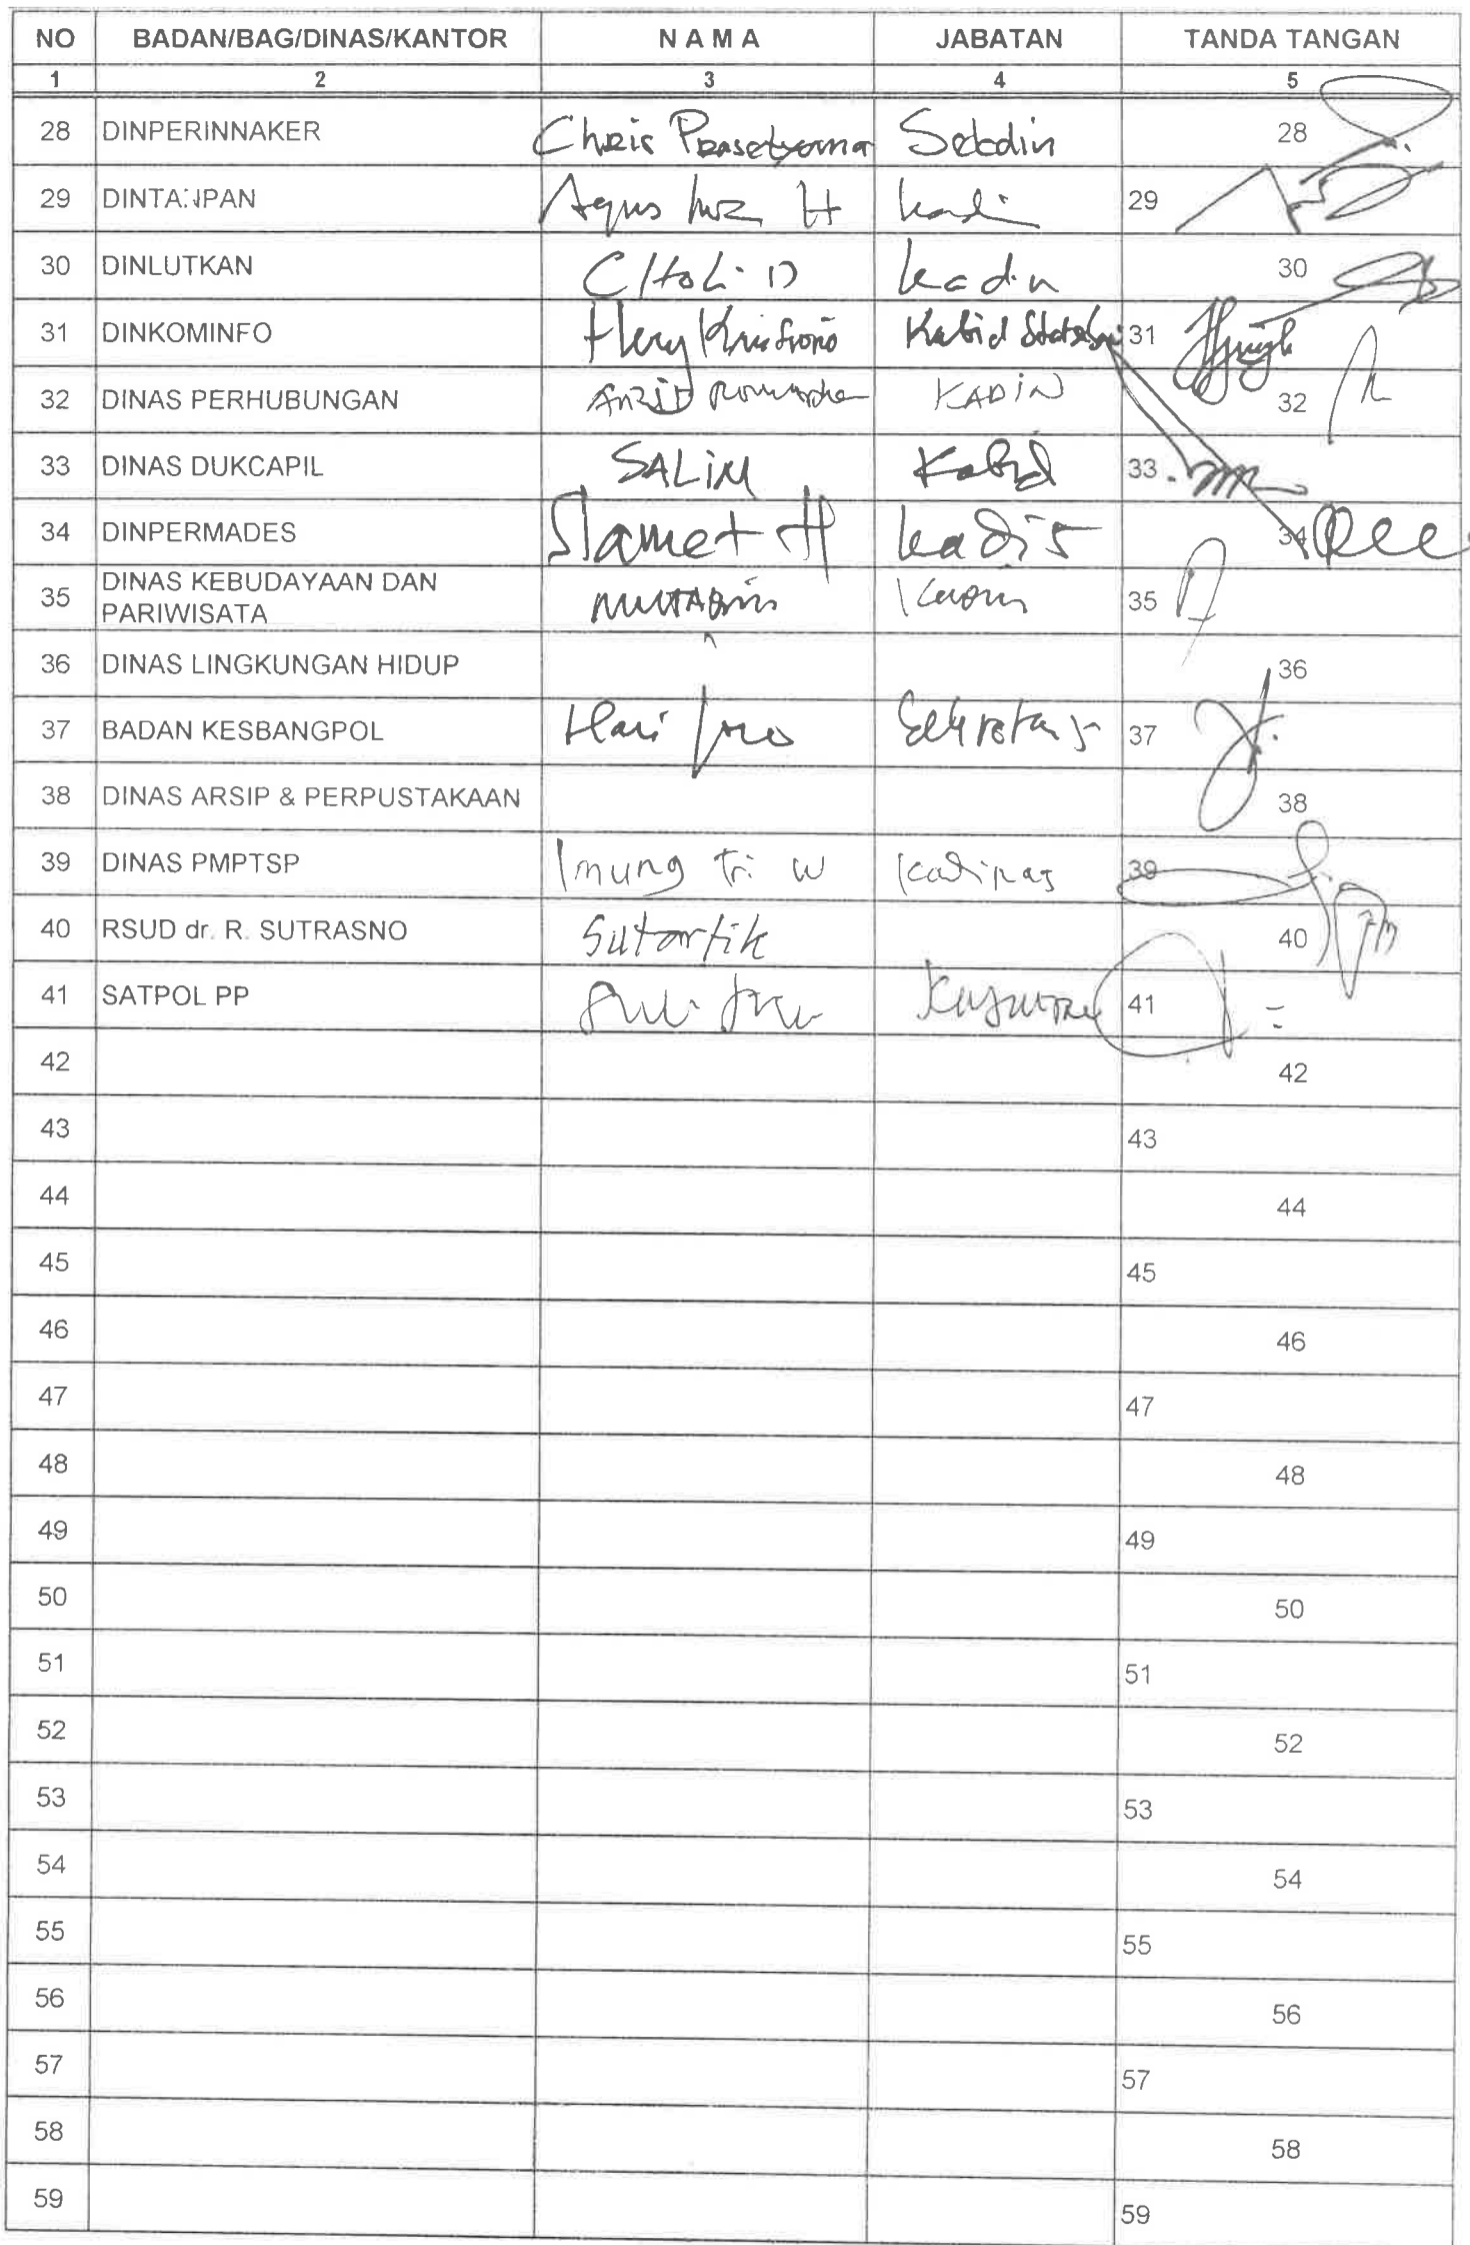 NO BADAN/BAG/DINAS/KANTOR N A M A JABATAN TANDA TANGAN
1 2 3 4 5
28 DINPERINNAKER Chris Sekdin 28
29 Agus H 29
30 DINLUTKAN Kadin 30
31 DINKOMINFO Hery Kabid 31
32 DINAS PERHUBUNGAN KADIN 32
33 DINAS DUKCAPIL SALIM Kabid 33
34 DINPERMADES Slamet H Kadis 34
35 DINAS KEBUDAYAAN DAN
PARIWISATA 35
36 DINAS LINGKUNGAN HIDUP 36
37 BADAN KESBANGPOL Hari 37
38 DINAS ARSIP & PERPUSTAKAAN 38
39 DINAS PMPTSP Inung Tri W 39
40 RSUD dr. R. SUTRASNO Sutartik 40
41 SATPOL PP 41
42 42
43 43
44 44
45 45
46 46
47 47
48 48
49 49
50 50
51 51
52 52
53 53
54 54
55 55
56 56
57 57
58 58
59 59